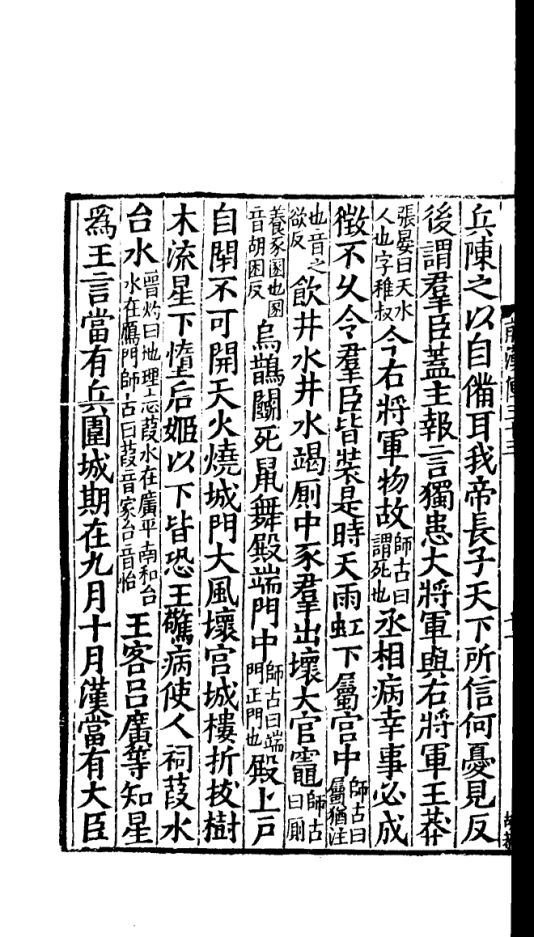 兵陳之以自備耳我帝長子天下所信何憂見反
後謂羣臣蓋主報言獨患大將軍與右將軍王莽
張晏曰天水人也字稚叔今右將軍物故師古曰謂死也丞相病幸事必成
徵不乆令羣臣皆裝是時天雨虹下屬宮中師古曰屬猶注
也音之欲反飲井水井水竭厠中豕羣出壞大官竈師古曰厠
養豕圂也圂音胡困反烏鵲鬭死鼠舞殿端門中師古曰端門正門也殿上戸
自閉不可開天火燒城門大風壞宮城樓折拔樹
木流星下墯后姬以下皆恐王驚病使人祠葭水
台水晉灼曰地理志葭水在廣平南和台水在鴈門師古曰葭音家台音怡王客吕廣等知星
爲王言當有兵圍城期在九月十月漢當有大臣